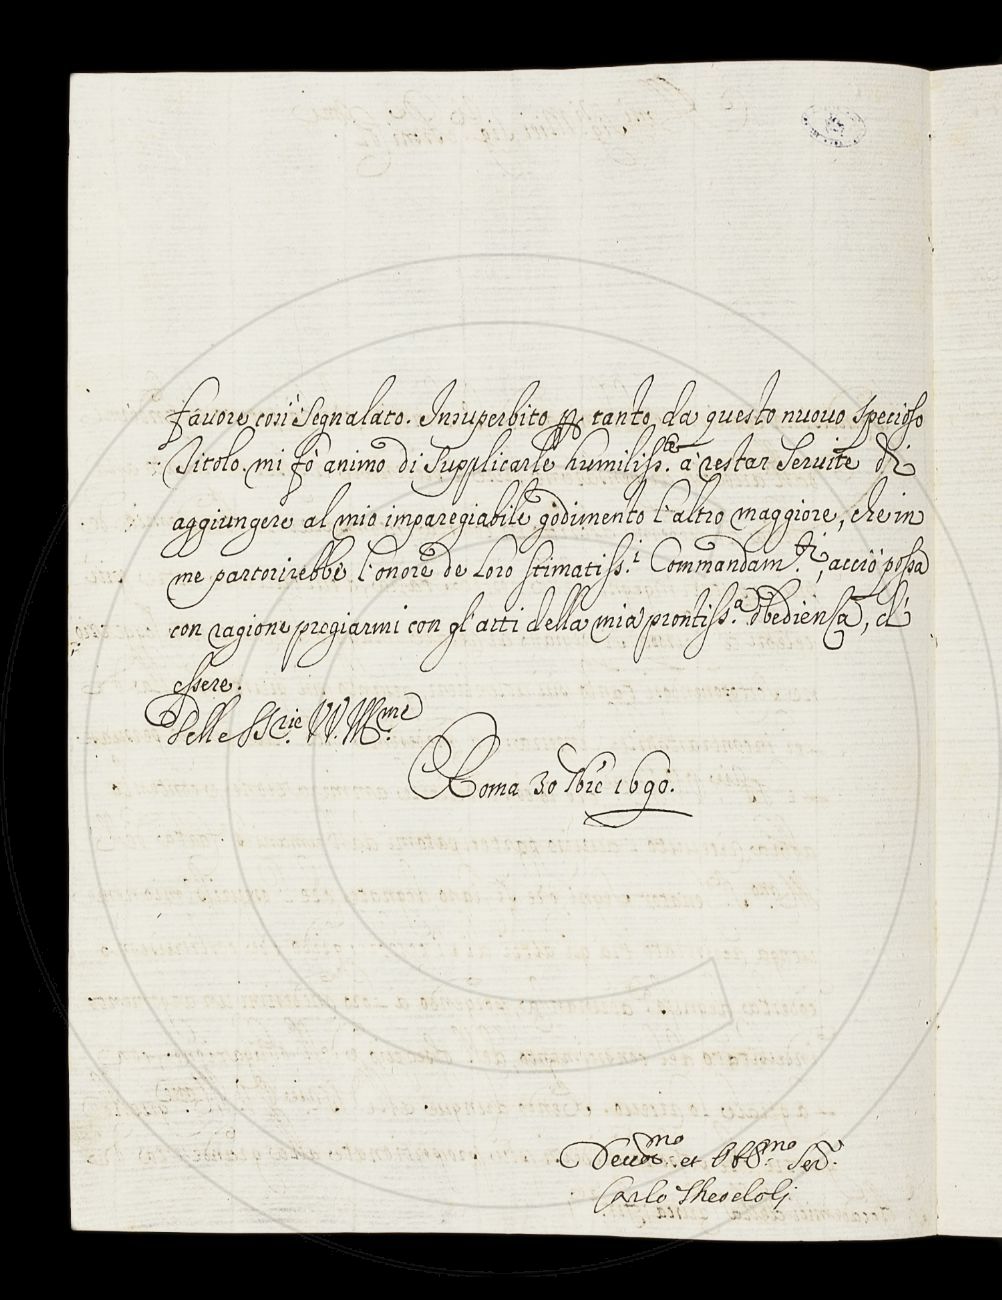 favore così segnalato. Insuperbito per tanto da questo nuovo specioso
Titolo mi fò animo di supplicarle humiliss.te à restar servite di
aggiungere al mio imparegiabile godimento l'altro maggiore, che in
me partorirebbe l'onore de loro stimatiss.i Commandam.ti, acciò possa
con ragione pregiarmi con gl'atti della mia prontiss.a obedienza, el
essere.
Delle SS.rie VV. Ill.me
Roma 30 9bre 1690.
Devot.mo et Obb.mo Ser.
Carlo Theodoli